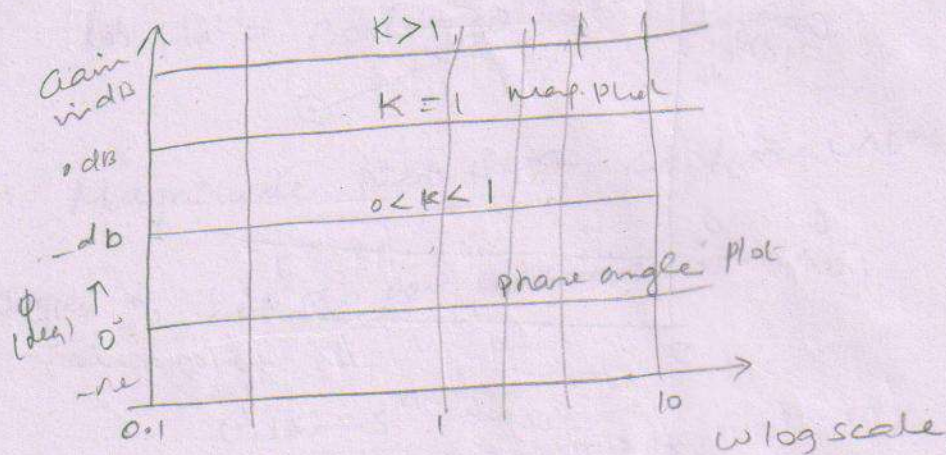 K > 1
Gain
in dB
K = 1 mag. plot
0 dB
0 < K < 1
- dB
phase angle plot
φ
(deg)
0°
-ve
0.1 1 10
ω log scale